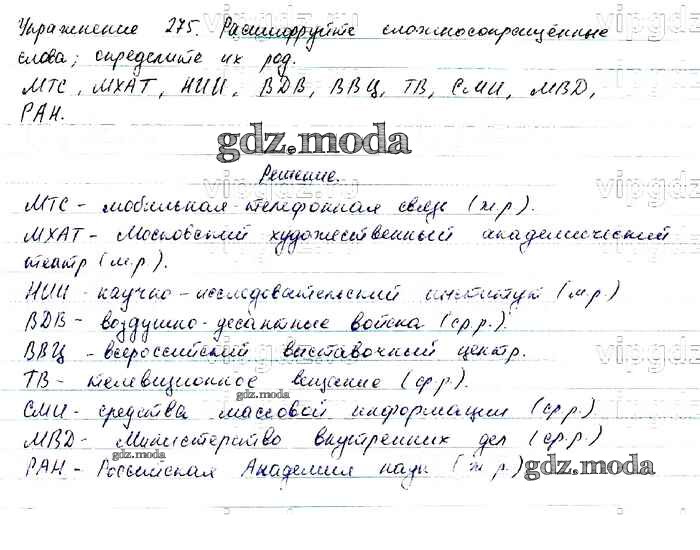 Упражнение 275. Расшифруйте сложносокращённые
слова; определите их род.
МТС, МХАТ, НИИ, ВДВ, ВВЦ, ТВ, СМИ, МВД,
РАН.
gdz.moda
Решение.
МТС - мобильная телефонная связь (ж.р).
МХАТ - Московский художественный академический
театр (м.р).
НИИ - научно-исследовательский институт (м.р.)
ВДВ - воздушно-десантные войска (ср.р.).
ВВЦ - всероссийский выставочный центр.
ТВ - телевизионное вещание (ср.р).
gdz.moda
СМИ - средства массовой информации (ср.р.)
МВД - Министерство внутренних дел (ср.р.)
gdz.moda
РАН - Российская Академия наук (ж.р.)
gdz.moda